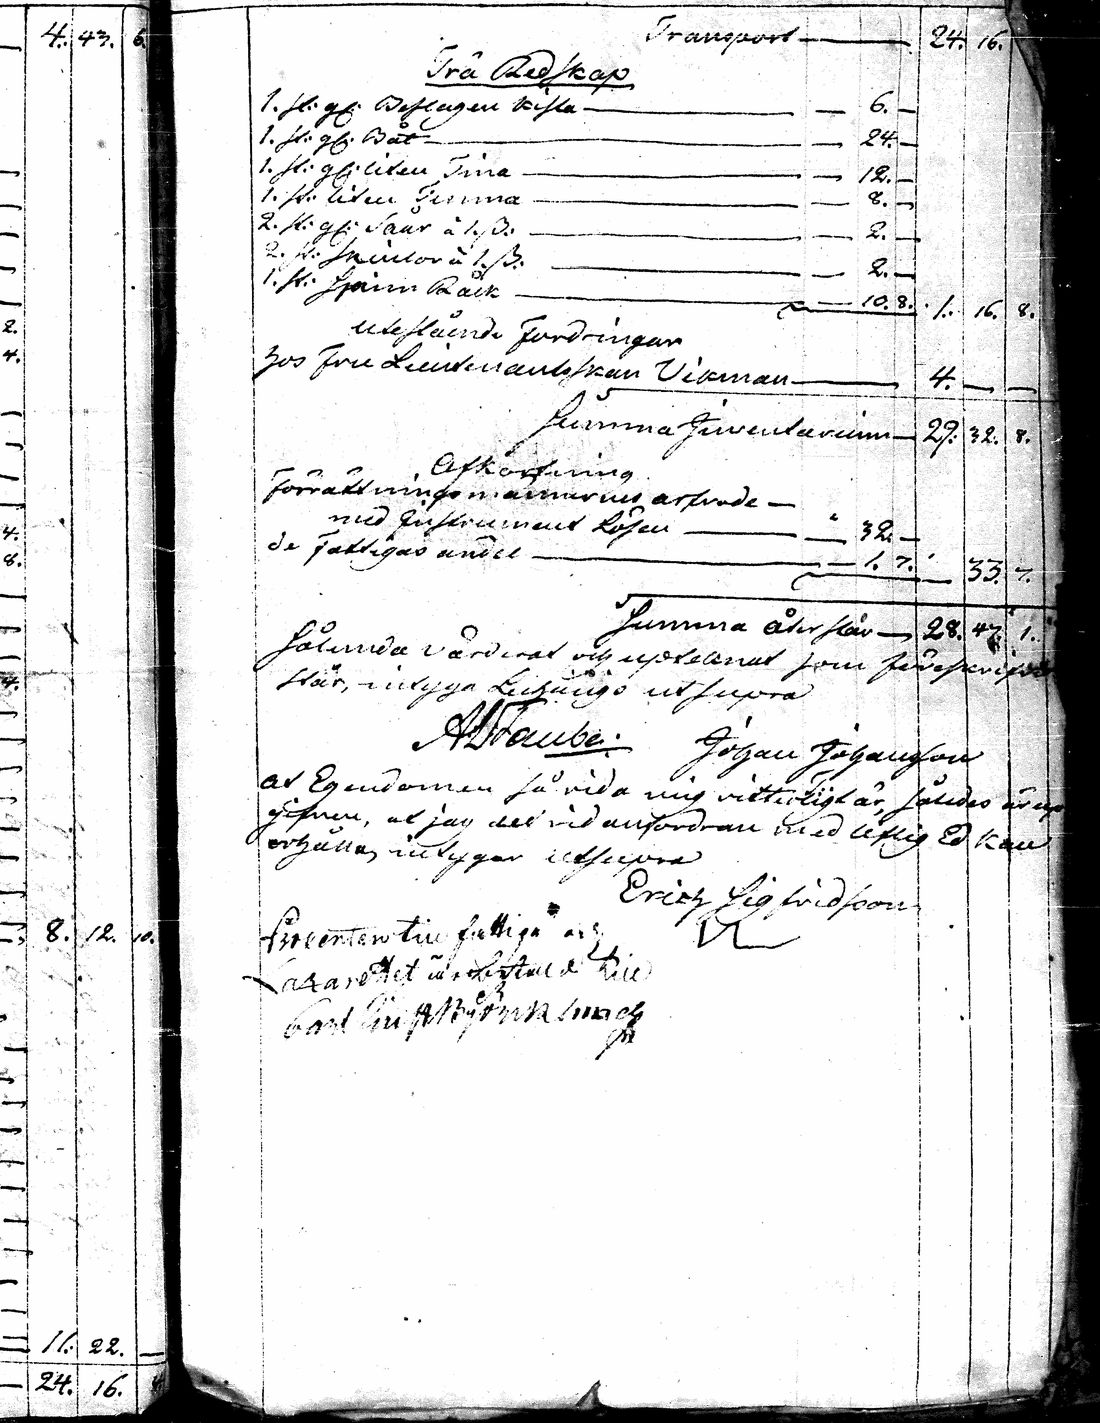 4. 43. 6.
2.
4.
4.
8.
4.
8. 12. 10.
11. 22. —
24. 16.
Transport — 24. 16.
Trä Redskap
1. st: gl: Beslagen Kista — — 6. —
1. st: gl: Båt — — 24. —
1. st: gl: liten Tina — — 12. —
1. st: liten Tinna — — 8. —
2. st: gl: Såar à 1.ß: — — 2. —
2. st: à 1.ß: — — 2. —
1. st: Spinn Råck — — 10. 8. 1. 16. 8.
utestående Fordringar
hos Fru Lieutenantskan Vikman — 4. — —
Summa Inventarium — 29. 32. 8.
Afkortning
Förrättningsmännernes arfvode —
med Instrument Lösen — — 32. —
de Fattigas andel — — 1. 7. — 33. 7.
Summa Återstår — 28. 47. 1.
Sålunda värderat och uptecknat som föreskrifvit
står, intyga utsupra
Taube. Johan Johansson
at Egendomen så vida mig vitterligt är, således är up
gifven, at jag det vid anfordran med liflig Ed kan
erhålla, intygar utsupra
Erich Sigfridsson
Procenten till fattiga och
Lazarettet är till
Carl